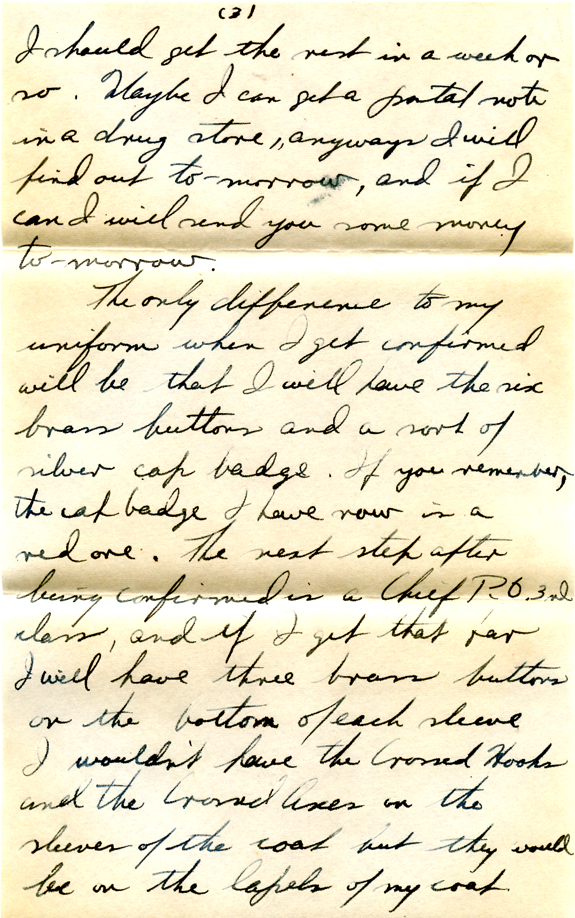 (3)
I should get the rest in a week or
so. Maybe I can get a postal note
in a drug store, anyways I will
find out to-morrow, and if I
can I will send you some money
to-morrow.
The only difference to my
uniform when I get confirmed
will be that I will have the six
brass buttons and a sort of
silver cap badge. If you remember,
the cap badge I have now is a
red one. The next step after
being confirmed is a Chief P.O. 3rd
class, and if I get that far
I will have three brass buttons
on the bottom of each sleeve
I wouldn't have the Crossed Hooks
and the Crossed Axes on the
sleeves of the coat but they would
be on the lapels of my coat